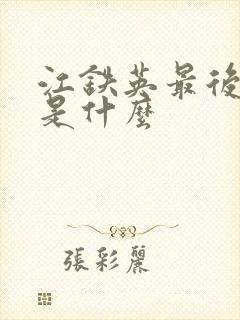 江鐵英最後
是什麼
張彩麗